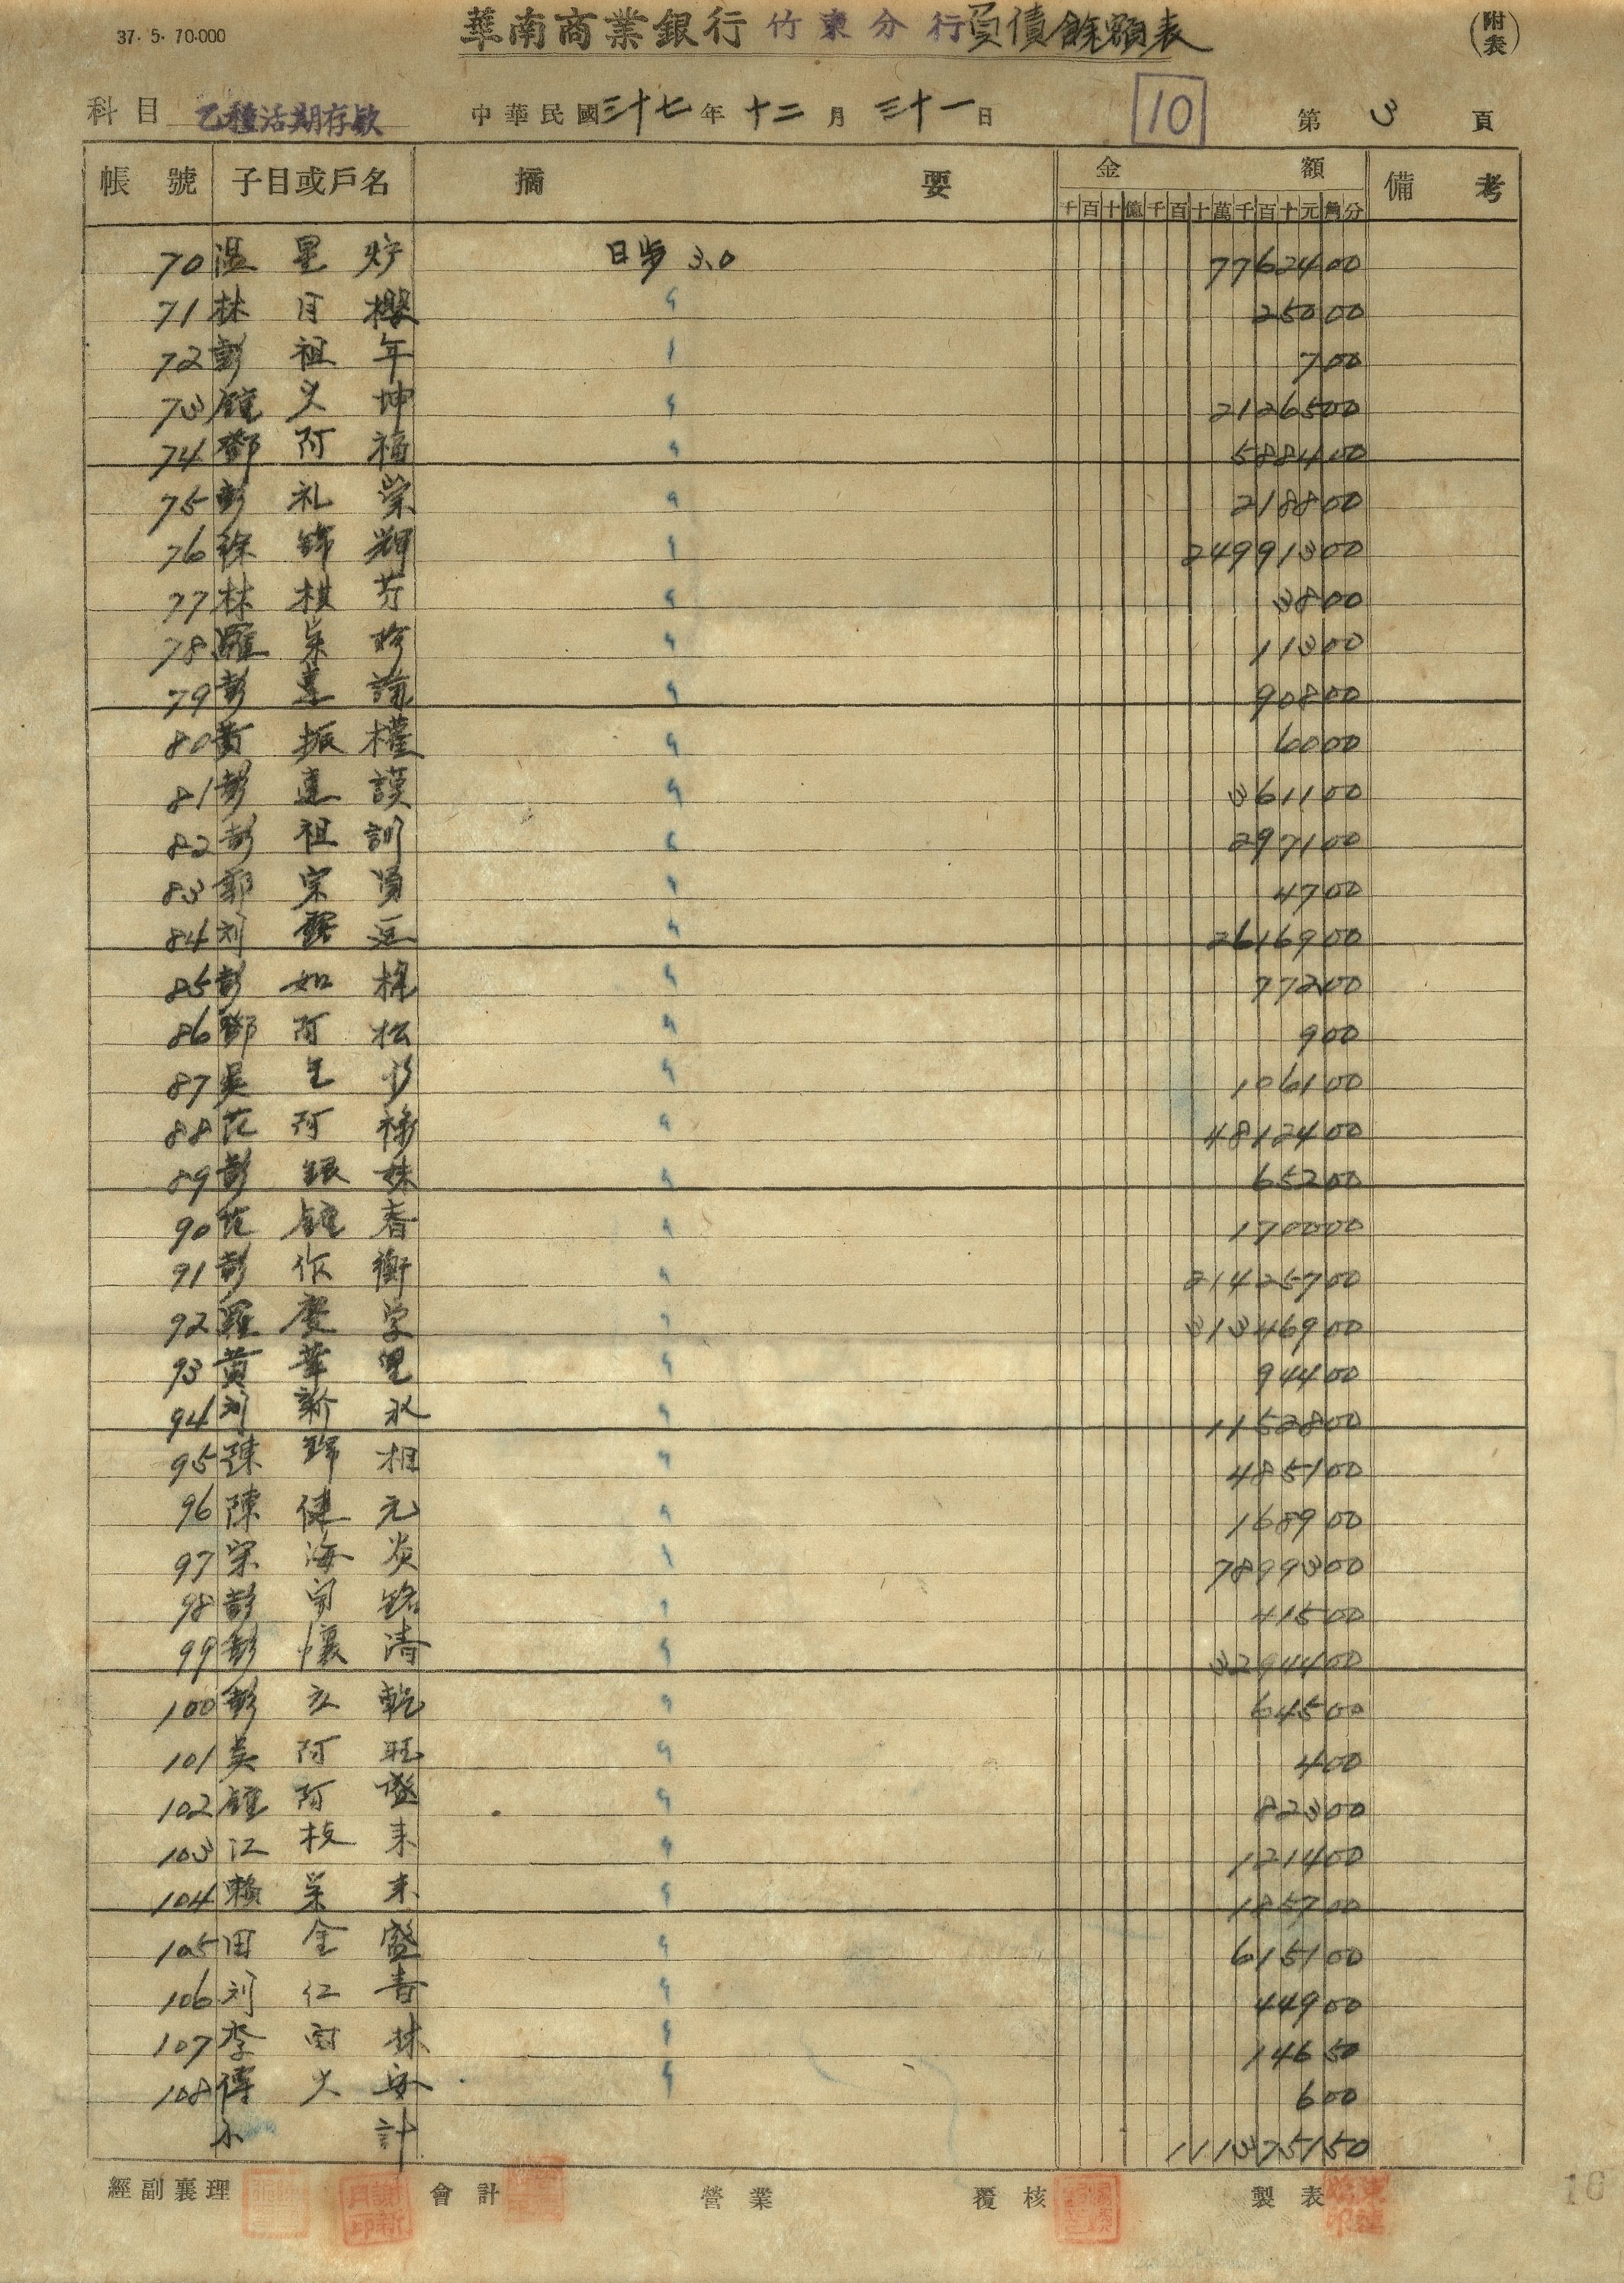 37. 5. 70.000
華南商業銀行 竹東分行 負債餘額表
(附表)
科目 乙種活期存款 中華民國三十七年十二月三十一日 10 第 3 頁
帳號 子目或戶名 摘要 金額 備考
千百十億千百十萬千百十元角分
70 温星 日步 3.0 7762400
71 林月櫻 〃 25000
72 彭祖年 〃 700
73 鍾火坤 〃 2126500
74 鄧阿福 〃 588400
75 彭礼榮 〃 218800
76 徐錦輝 〃 24991300
77 林棋芳 〃 3800
78 羅榮珍 〃 11300
79 彭 〃 90800
80 黃振權 〃 6000
81 彭達謨 〃 361100
82 彭祖訓 〃 297100
83 郭宗賢 〃 4700
84 刘 〃 2616900
85 彭如 〃 77200
86 鄧阿松 〃 900
87 吳 〃 106100
88 范阿祿 〃 4812400
89 彭銀妹 〃 65200
90 范鍾春 〃 170000
91 彭作衡 〃 21425700
92 羅慶 〃 31346900
93 黃華 〃 94400
94 刘新 〃 1152800
95 陳錦相 〃 485100
96 陳健元 〃 168900
97 宋海炎 〃 7899300
98 彭 銘 〃 41500
99 彭懷清 〃 3294400
100 彭 乾 〃 64500
101 吳阿旺 〃 400
102 鍾阿 〃 82300
103 江枝來 〃 121400
104 賴榮來 〃 185700
105 田金盛 〃 615100
106 刘仁春 〃 44900
107 李 林 〃 14650
108 傅火安 〃 600
小計 111375150
經副襄理 會計 營業 覆核 製表